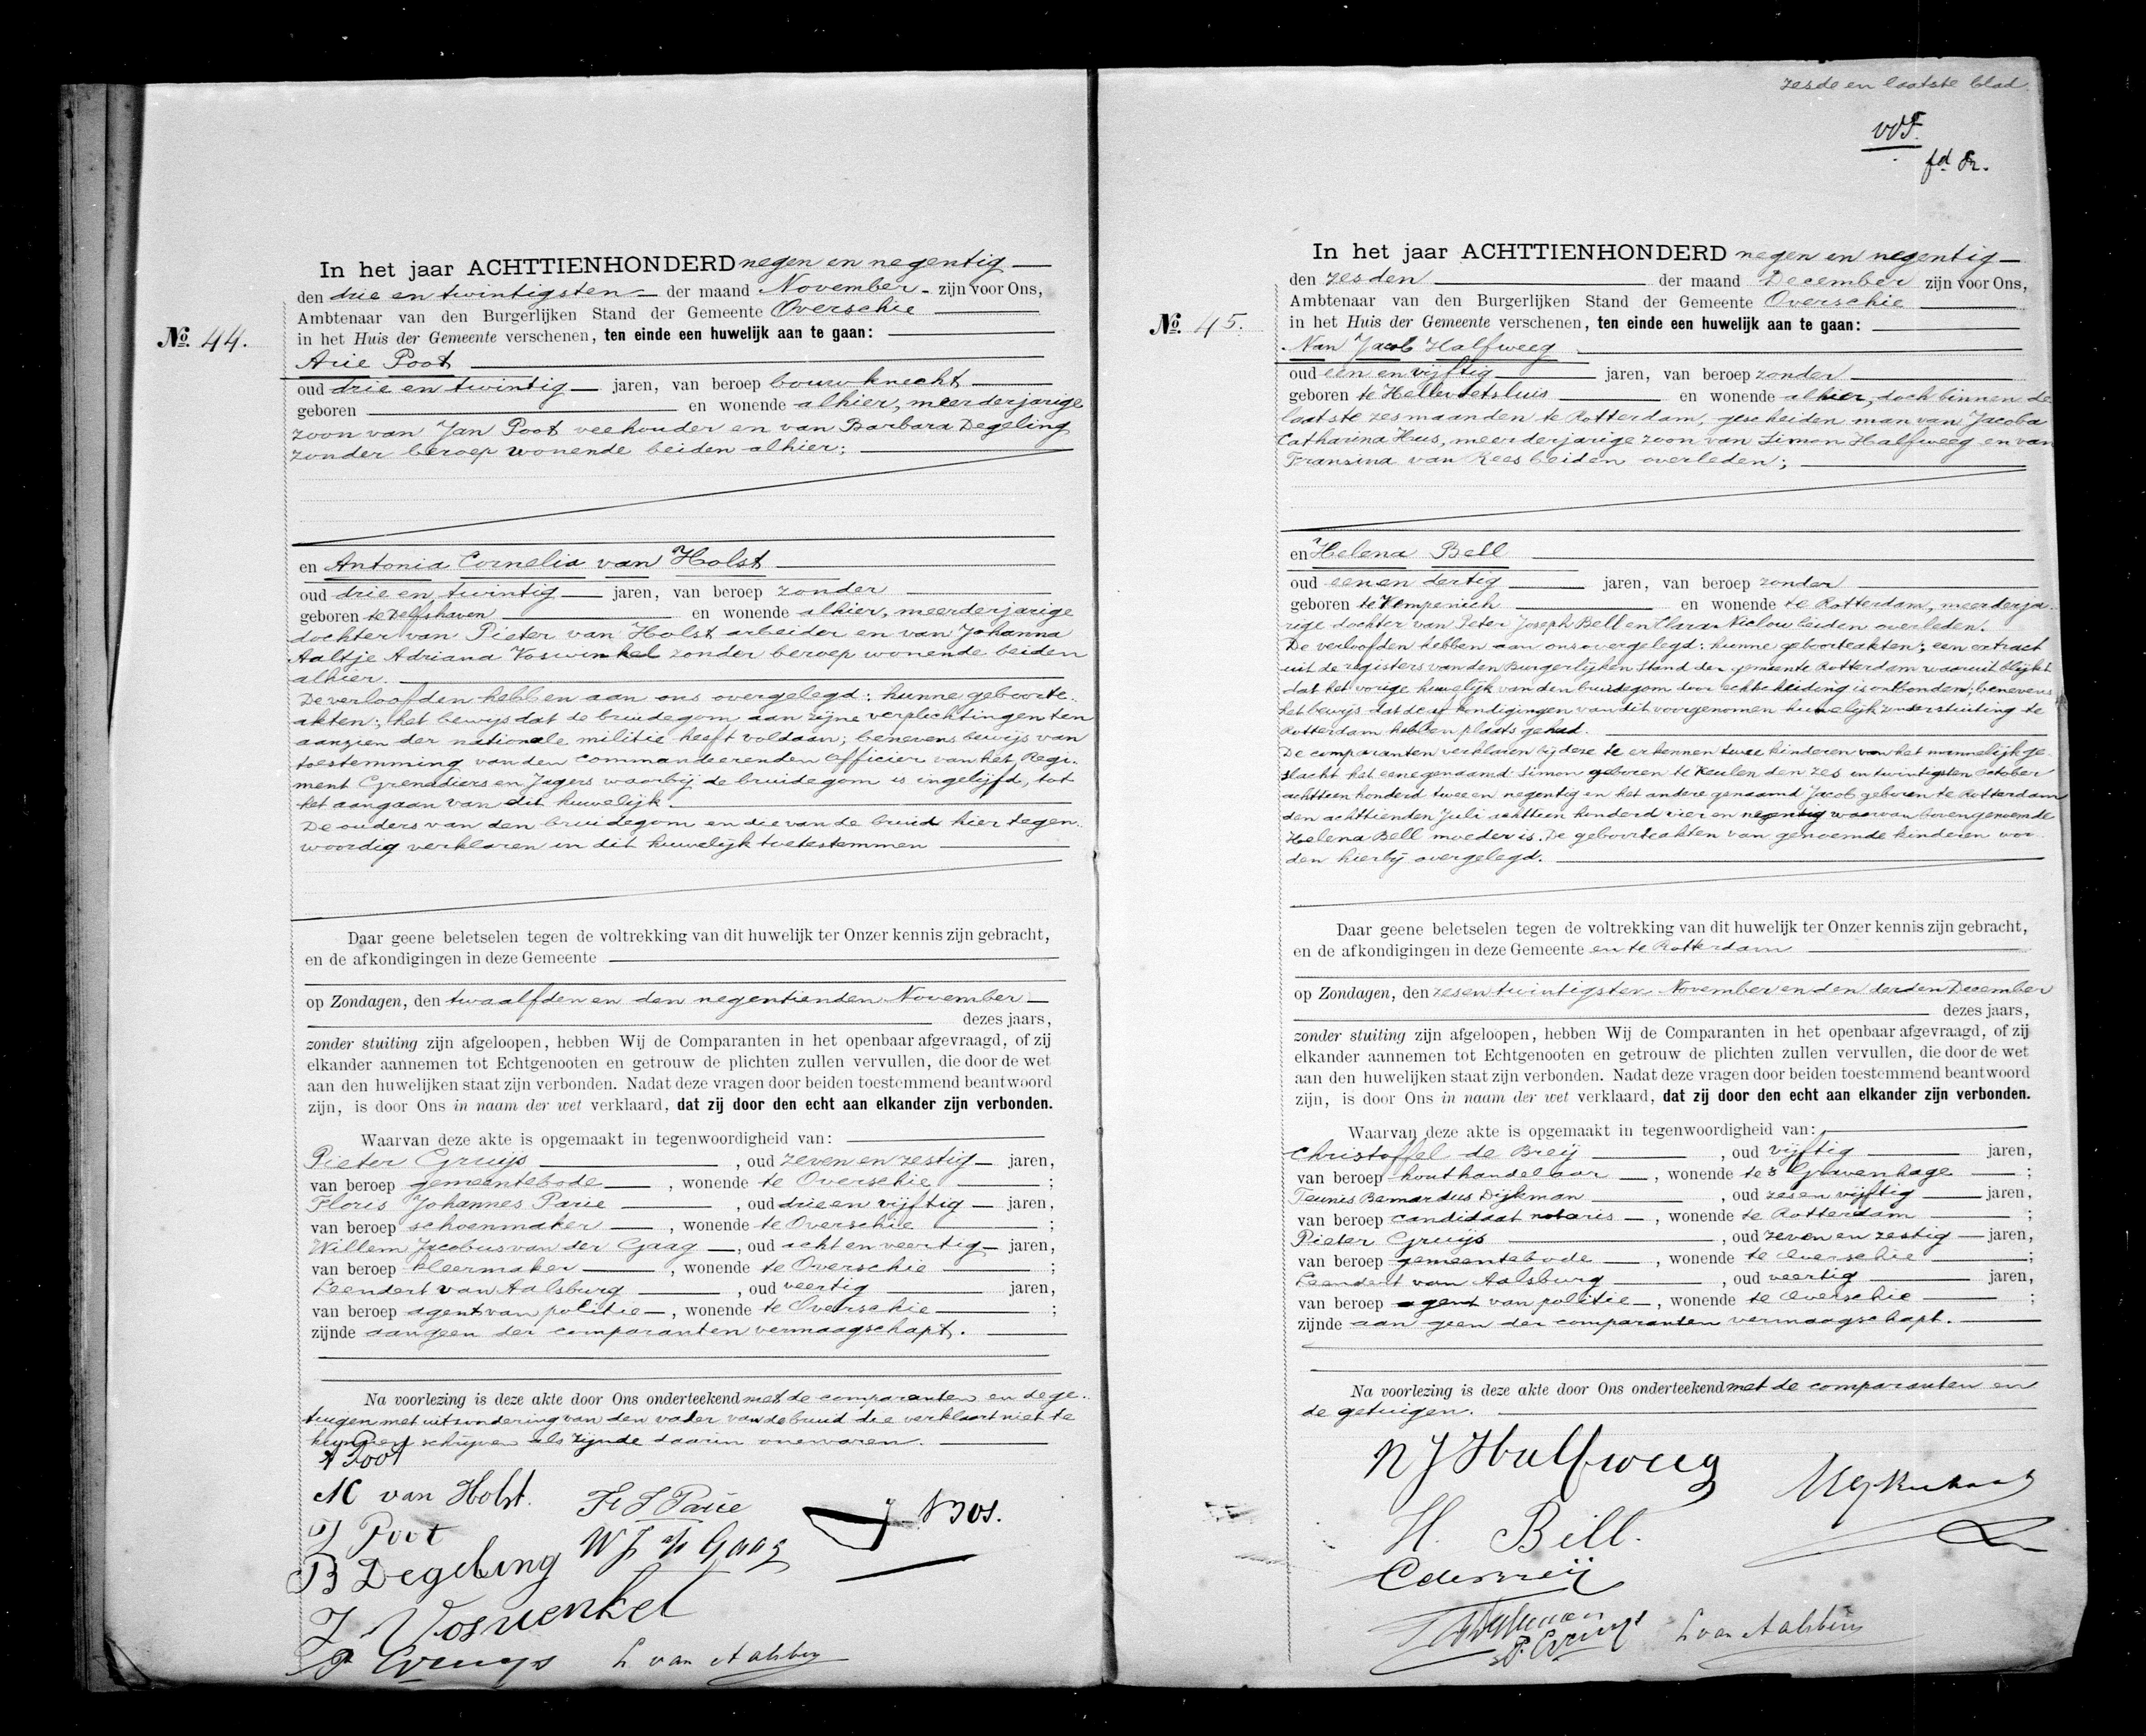 No. 44.
In het jaar ACHTTIENHONDERD negen en negentig
den drie en twintigsten der maand November zijn voor Ons,
Ambtenaar van den Burgerlijken Stand der Gemeente Overschie
in het Huis der Gemeente verschenen, ten einde een huwelijk aan te gaan:
Arie Poot
oud drie en twintig jaren, van beroep bouwknecht
geboren en wonende alhier, meerderjarige
zoon van Jan Poot veehouder en van Barbara Degeling
zonder beroep wonende beiden alhier;
en Antonia Cornelia van Holst
oud drie en twintig jaren, van beroep zonder
geboren te Delfshaven en wonende alhier, meerderjarige
dochter van Pieter van Holst arbeider en van Johanna
Aaltje Adriana Voswinkel zonder beroep wonende beiden
alhier.
De verloofden hebben aan ons overgelegd: hunne geboorte-
akten; het bewijs dat de bruidegom aan zijne verplichtingen ten
aanzien der nationale militie heeft voldaan; benevens bewijs van
toestemming van den commandeerenden Officier van het Regi-
ment Grenadiers en Jagers waarbij de bruidegom is ingelijfd, tot
het aangaan van dit huwelijk
De ouders van den bruidegom en die van de bruid hier tegen-
woordig verklaren in dit huwelijk toetestemmen
Daar geene beletselen tegen de voltrekking van dit huwelijk ter Onzer kennis zijn gebracht,
en de afkondigingen in deze Gemeente
op Zondagen, den twaalfden en den negentienden November
dezes jaars,
zonder stuiting zijn afgeloopen, hebben Wij de Comparanten in het openbaar afgevraagd, of zij
elkander aannemen tot Echtgenooten en getrouw de plichten zullen vervullen, die door de wet
aan den huwelijken staat zijn verbonden. Nadat deze vragen door beiden toestemmend beantwoord
zijn, is door Ons in naam der wet verklaard, dat zij door den echt aan elkander zijn verbonden.
Waarvan deze akte is opgemaakt in tegenwoordigheid van:
Pieter Gruys, oud zeven en zestig jaren,
van beroep gemeentebode, wonende te Overschie;
Floris Johannes Parie, oud drie en vijftig jaren,
van beroep schoenmaker, wonende te Overschie;
Willem Jacobus van der Gaag, oud acht en veertig jaren,
van beroep kleermaker, wonende te Overschie;
Leendert van Aalsburg, oud veertig jaren,
van beroep agent van politie, wonende te Overschie;
zijnde aan geen der comparanten vermaagschapt.
Na voorlezing is deze akte door Ons onderteekend met de comparanten en de ge-
tuigen met uitzondering van den vader van de bruid die verklaart niet te
kunnen schrijven als zijnde daarin onervaren.
A Poot
AC van Holst.
J Poot
B Degeling
J Voswenkel
P Gruys
Fl J Parie
W J v/d Gaag
L van Aalsburg
J Bos.
zesde en laatste blad
No. 45.
In het jaar ACHTTIENHONDERD negen en negentig
den zesden der maand December zijn voor Ons,
Ambtenaar van den Burgerlijken Stand der Gemeente Overschie
in het Huis der Gemeente verschenen, ten einde een huwelijk aan te gaan:
Nan Jacob Halfweeg
oud een en vijftig jaren, van beroep zonder
geboren te Hellevoetsluis en wonende alhier, doch binnen de
laatste zes maanden te Rotterdam, gescheiden man van Jacoba
Catharina Hus, meerderjarige zoon van Simon Halfweeg en van
Fransina van Rees beiden overleden;
en Helena Bell
oud een en dertig jaren, van beroep zonder
geboren te Kempenich en wonende te Rotterdam, meerderja-
rige dochter van Peter Joseph Bell en Clara Niclou beiden overleden.
De verloofden hebben aan ons overgelegd: hunne geboorteakten; een extract
uit de registers van den Burgerlijken Stand der gemeente Rotterdam waaruit blijkt
dat het vorige huwelijk van den bruidegom door echtscheiding is ontbonden; benevens
het bewijs dat de afkondigingen van dit voorgenomen huwelijk zonder stuiting te
Rotterdam hebben plaats gehad.
De comparanten verklaren bij deze te erkennen twee kinderen van het mannelijk ge-
slacht het eene genaamd Simon geboren te Keulen den zes en twintigsten October
achttien honderd twee en negentig en het andere genaamd Jacob geboren te Rotterdam
den achttienden Juli achttien honderd vier en negentig waarvan bovengenoemde
Helena Bell moeder is. De geboorteakten van genoemde kinderen wor-
den hierbij overgelegd.
Daar geene beletselen tegen de voltrekking van dit huwelijk ter Onzer kennis zijn gebracht,
en de afkondigingen in deze Gemeente en te Rotterdam
op Zondagen, den zes en twintigsten November en den derden December
dezes jaars,
zonder stuiting zijn afgeloopen, hebben Wij de Comparanten in het openbaar afgevraagd, of zij
elkander aannemen tot Echtgenooten en getrouw de plichten zullen vervullen, die door de wet
aan den huwelijken staat zijn verbonden. Nadat deze vragen door beiden toestemmend beantwoord
zijn, is door Ons in naam der wet verklaard, dat zij door den echt aan elkander zijn verbonden.
Waarvan deze akte is opgemaakt in tegenwoordigheid van:
Christoffel de Breij, oud vijftig jaren,
van beroep houthandelaar, wonende te 's Gravenhage;
Teunis Bernardus Dijkman, oud zes en vijftig jaren,
van beroep candidaat notaris, wonende te Rotterdam;
Pieter Gruys, oud zeven en zestig jaren,
van beroep gemeentebode, wonende te Overschie;
Leendert van Aalsburg, oud veertig jaren,
van beroep agent van politie, wonende te Overschie;
zijnde aan geen der comparanten vermaagschapt.
Na voorlezing is deze akte door Ons onderteekend met de comparanten en
de getuigen.
N J Halfweeg
H. Bell.
C de Breij
T B Dijkman
P. Gruys
L van Aalsburg